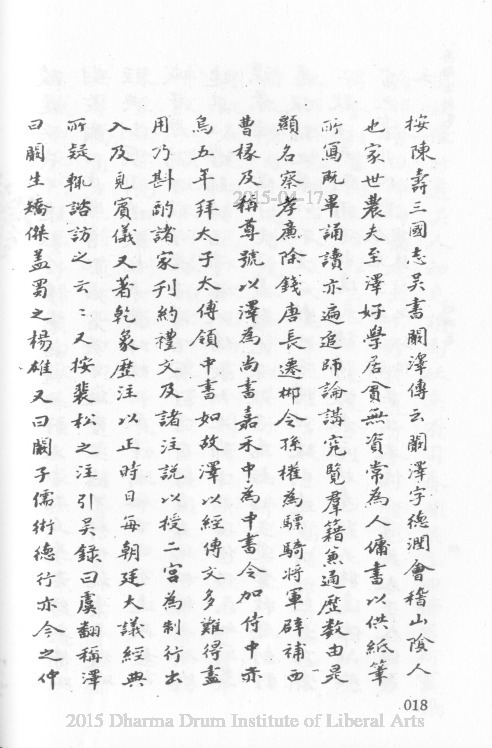 按陳壽三國志吳書闞澤傳云闞澤字德潤會稽山陰人
也家世農夫至澤好學居貧無資常為人傭書以供紙筆
所寫既畢誦讀亦遍追師論講究覽羣籍兼通歷數由是
顯名察孝廉除錢唐長遷郴令孫權為驃騎將軍辟補西
曹椽及稱尊號以澤為尚書嘉禾中為中書令加侍中赤
烏五年拜太子太傅領中書如故澤以經傳文多難得盡
用乃斟酌諸家刋約禮文及諸注説以授二宮為制行出
入及見賓儀又著乾象歷注以正時日每朝廷大議經典
所疑輒諮訪之云〻又按裴松之注引吳錄曰虞翻稱澤
曰闞生矯傑盖蜀之楊雄又曰闞子儒術德行亦今之仲
018
2015-04-17
2015 Dharma Drum Institute of Liberal Arts